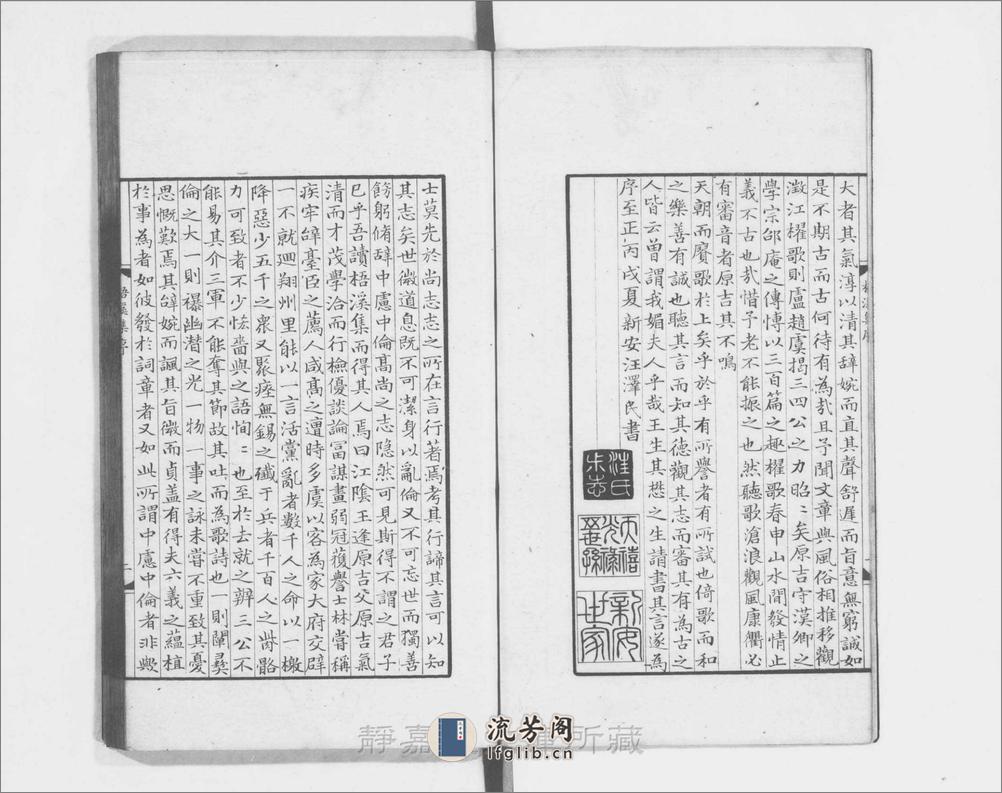 大者其氣淳以清其辭婉而直其聲舒遲而旨意無窮誠如
是不期古而古何待有為㢤且予聞文章與風俗相推移觀
澂江櫂歌則盧趙虞揭三四公之力昭〻矣原吉守漢卿之
學宗邵庵之傳愽以三百篇之趣櫂歌春申山水間發情止
義不古也㢤惜予老不能振之也然聽歌滄浪觀風康衢必
有審音者原吉其不鳴
天朝而賡歌於上矣乎於乎有所譽者有所試也倚歌而和
之樂善有誠也聽其言而知其德觀其志而審其有為古之
人皆云曾謂我媚夫人乎哉王生其懋之生請書其言遂為
序至正丙戌夏新安汪澤民書
汪氏
新安
世家
士莫先於尚志志之所在言行著焉考其行諦其言可以知
其志矣世微道息既不可潔身以亂倫又不可忘世而獨善
飭躬脩辭中慮中倫髙尚之志隐然可見斯得不謂之君子
已乎吾讀梧溪集而得其人焉曰江陰王逢原吉父原吉氣
清而才茂學洽而行檢優談論冨謀畫弱冠獲譽士林嘗稱
疾牢辭臺臣之薦人咸髙之遭時多虞以客為家大府交辟
一不就廻翔州里能以一言活黨亂者數千人之命以一檄
降惡少五千之衆又聚瘞無錫之殱于兵者千百人之胔骼
力可致者不少恡嗇與之語恂〻也至於去就之辨三公不
能易其介三軍不能奪其節故其吐而為歌詩也一則闡彞
倫之大一則㬥幽潜之光一物一事之詠未嘗不重致其憂
思慨歎焉其辭婉而諷其旨微而貞盖有得夫六義之蘊植
於事為者如彼發於詞章者又如此所謂中慮中倫者非歟
梧溪集序
二
靜嘉 所藏
流芳阁
lfglib.cn